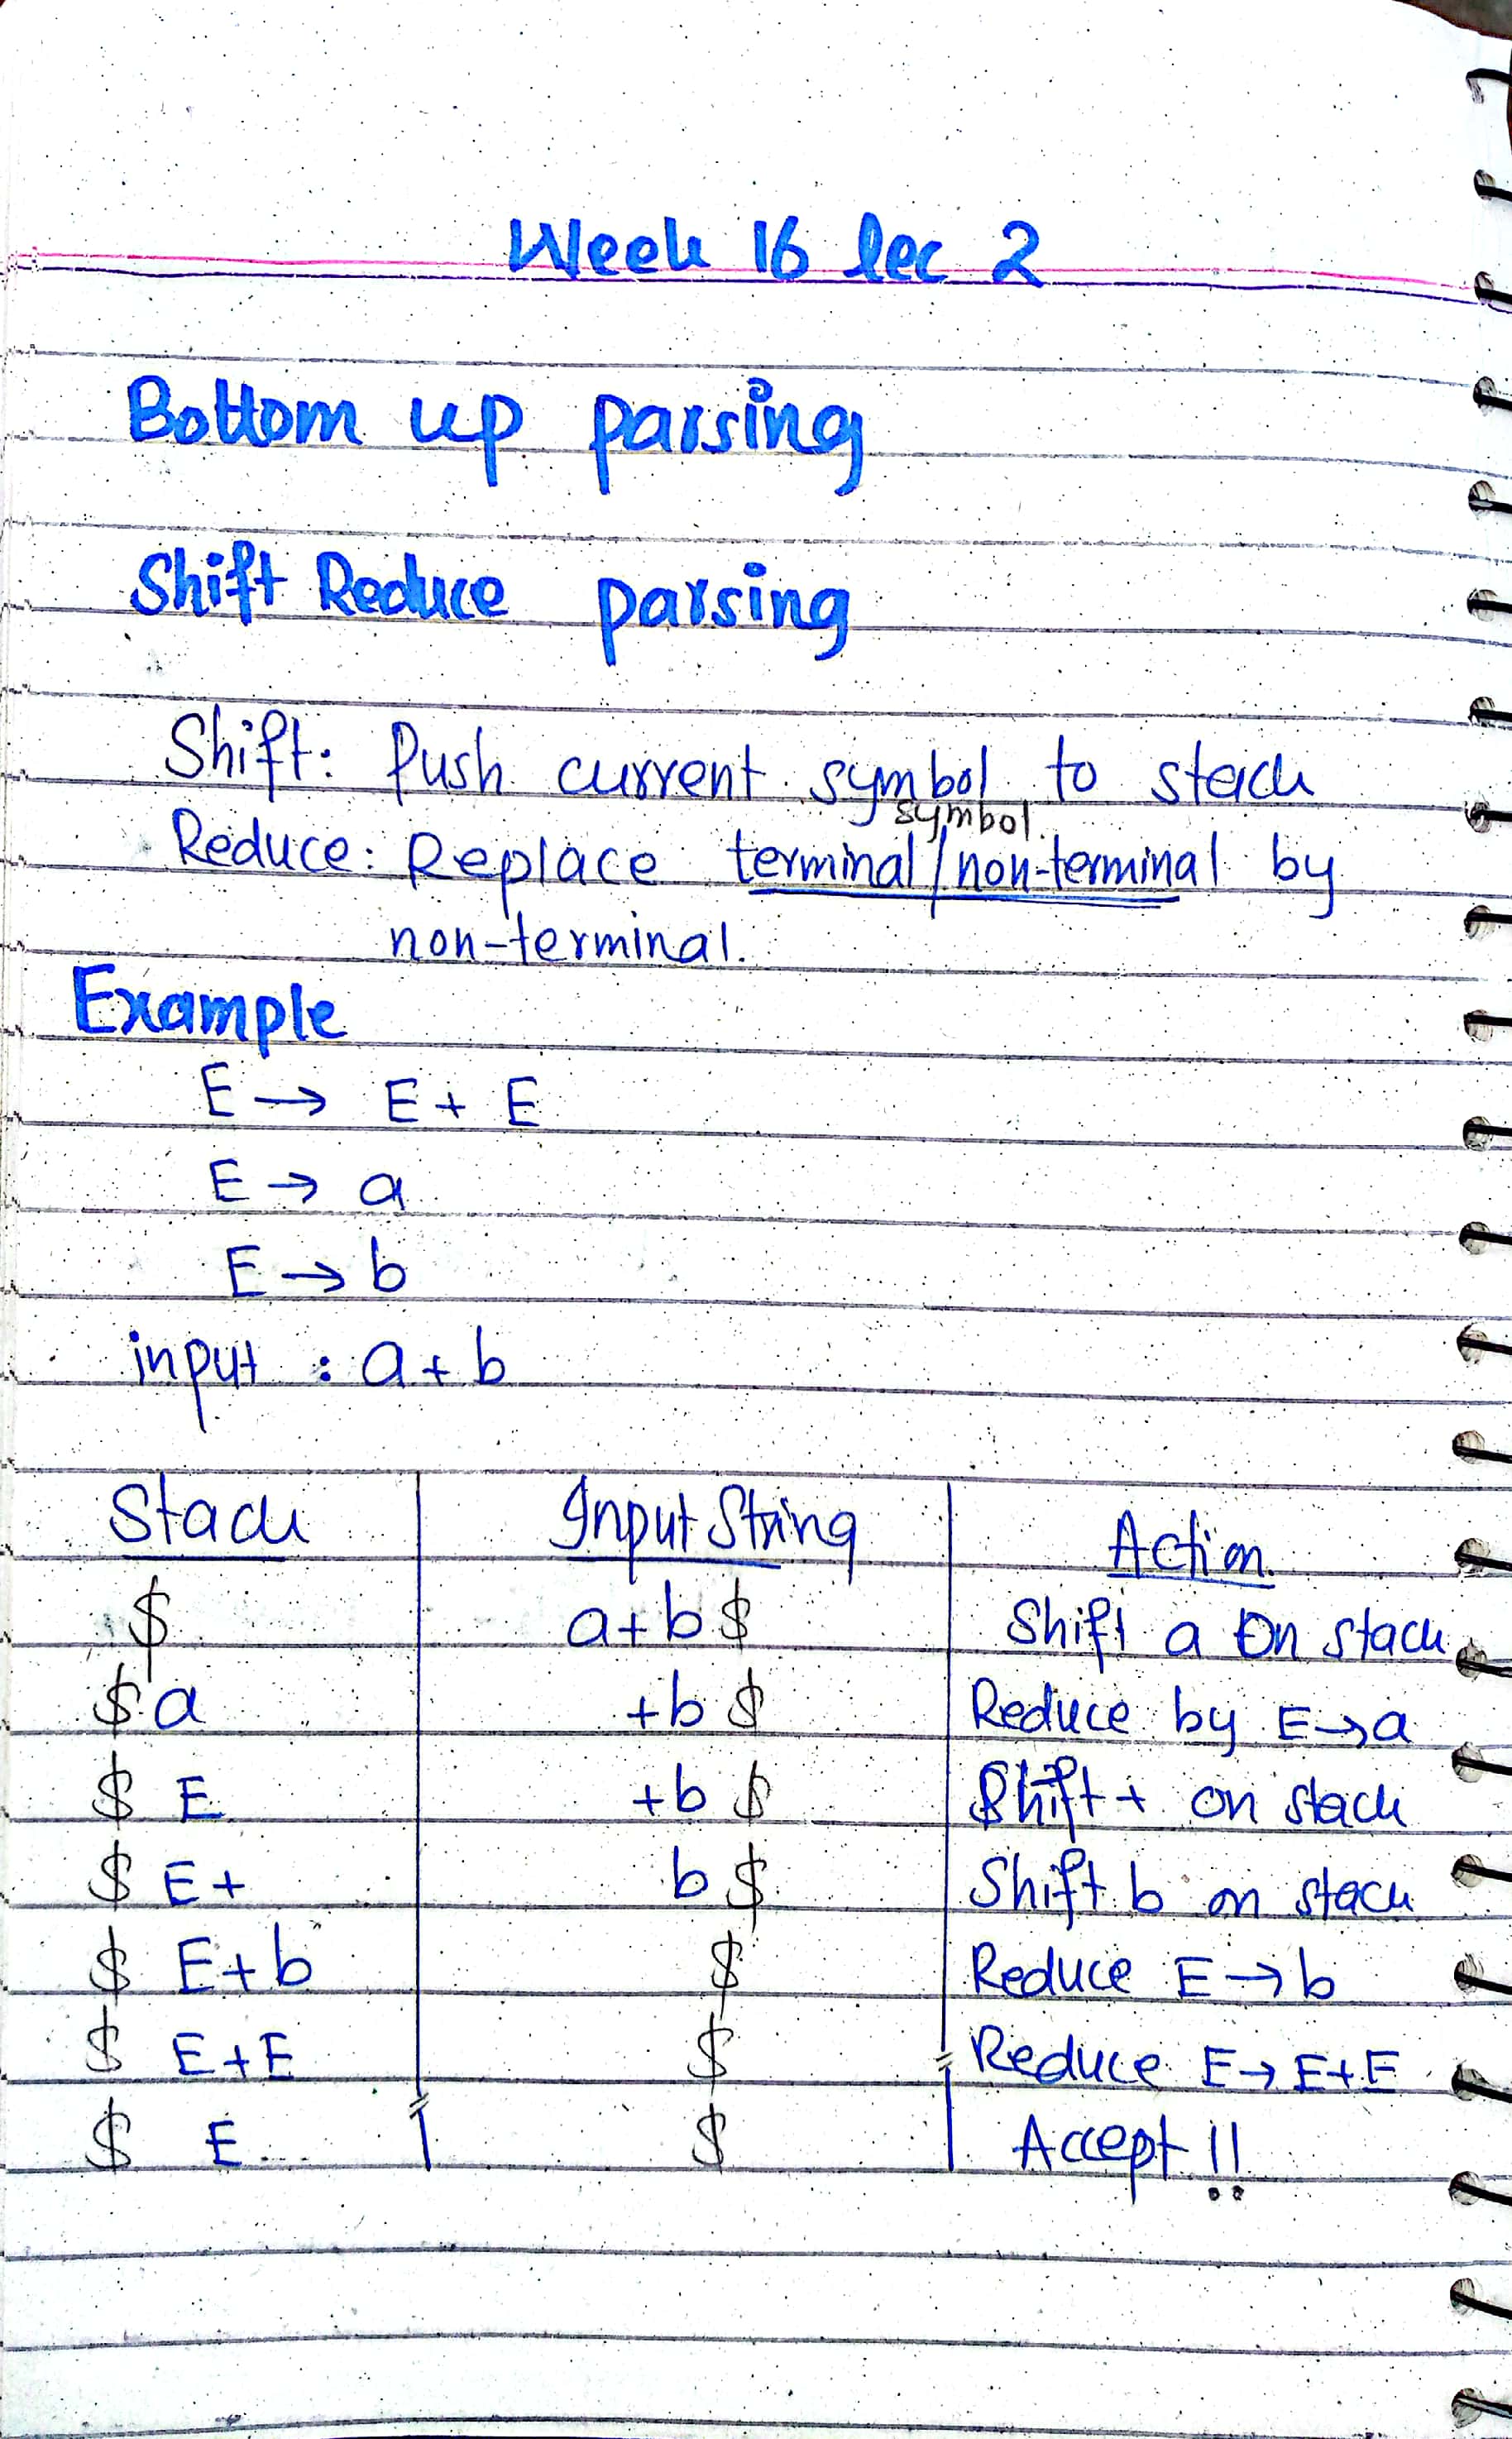 Week 16 lec 2
Bottom up parsing
Shift Reduce parsing
Shift: Push current symbol to stack
symbol
Reduce: Replace terminal/non-terminal by
non-terminal.
Example
E → E + E
E → a
E → b
input : a + b
Stack Input String Action
$ a+b$ Shift a on stack
$ a +b $ Reduce by E→a
$ E +b $ Shift + on stack
$ E+ b $ Shift b on stack
$ E+b $ Reduce E→b
$ E+E $ Reduce E→E+E
$ E $ Accept !!